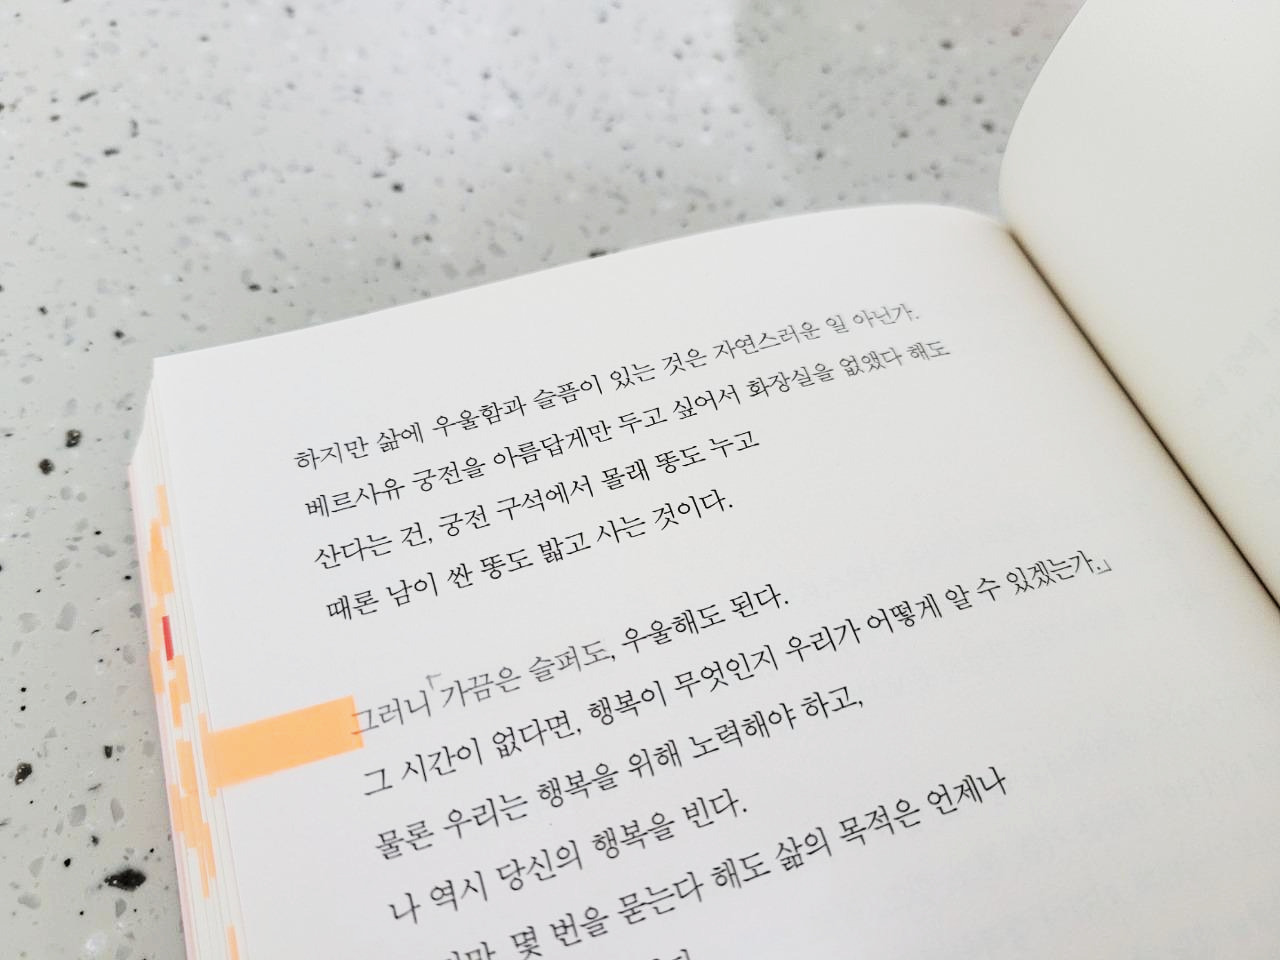 하지만 삶에 우울함과 슬픔이 있는 것은 자연스러운 일 아닌가.
베르사유 궁전을 아름답게만 두고 싶어서 화장실을 없앴다 해도
산다는 건, 궁전 구석에서 몰래 똥도 누고
때론 남이 싼 똥도 밟고 사는 것이다.
그러니 「가끔은 슬퍼도, 우울해도 된다.
그 시간이 없다면, 행복이 무엇인지 우리가 어떻게 알 수 있겠는가.」
물론 우리는 행복을 위해 노력해야 하고,
나 역시 당신의 행복을 빈다.
몇 번을 묻는다 해도 삶의 목적은 언제나